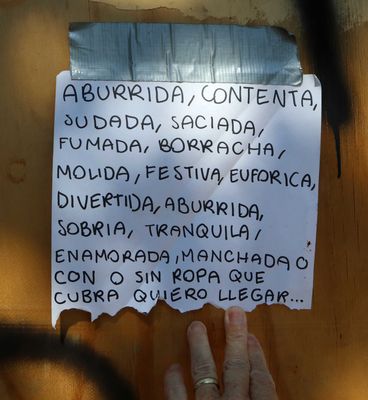 ABURRIDA, CONTENTA,
SUDADA, SACIADA,
FUMADA, BORRACHA,
MOLIDA, FESTIVA, EUFORICA,
DIVERTIDA, ABURRIDA,
SOBRIA, TRANQUILA,
ENAMORADA, MANCHADA O
CON O SIN ROPA QUE
CUBRA QUIERO LLEGAR...